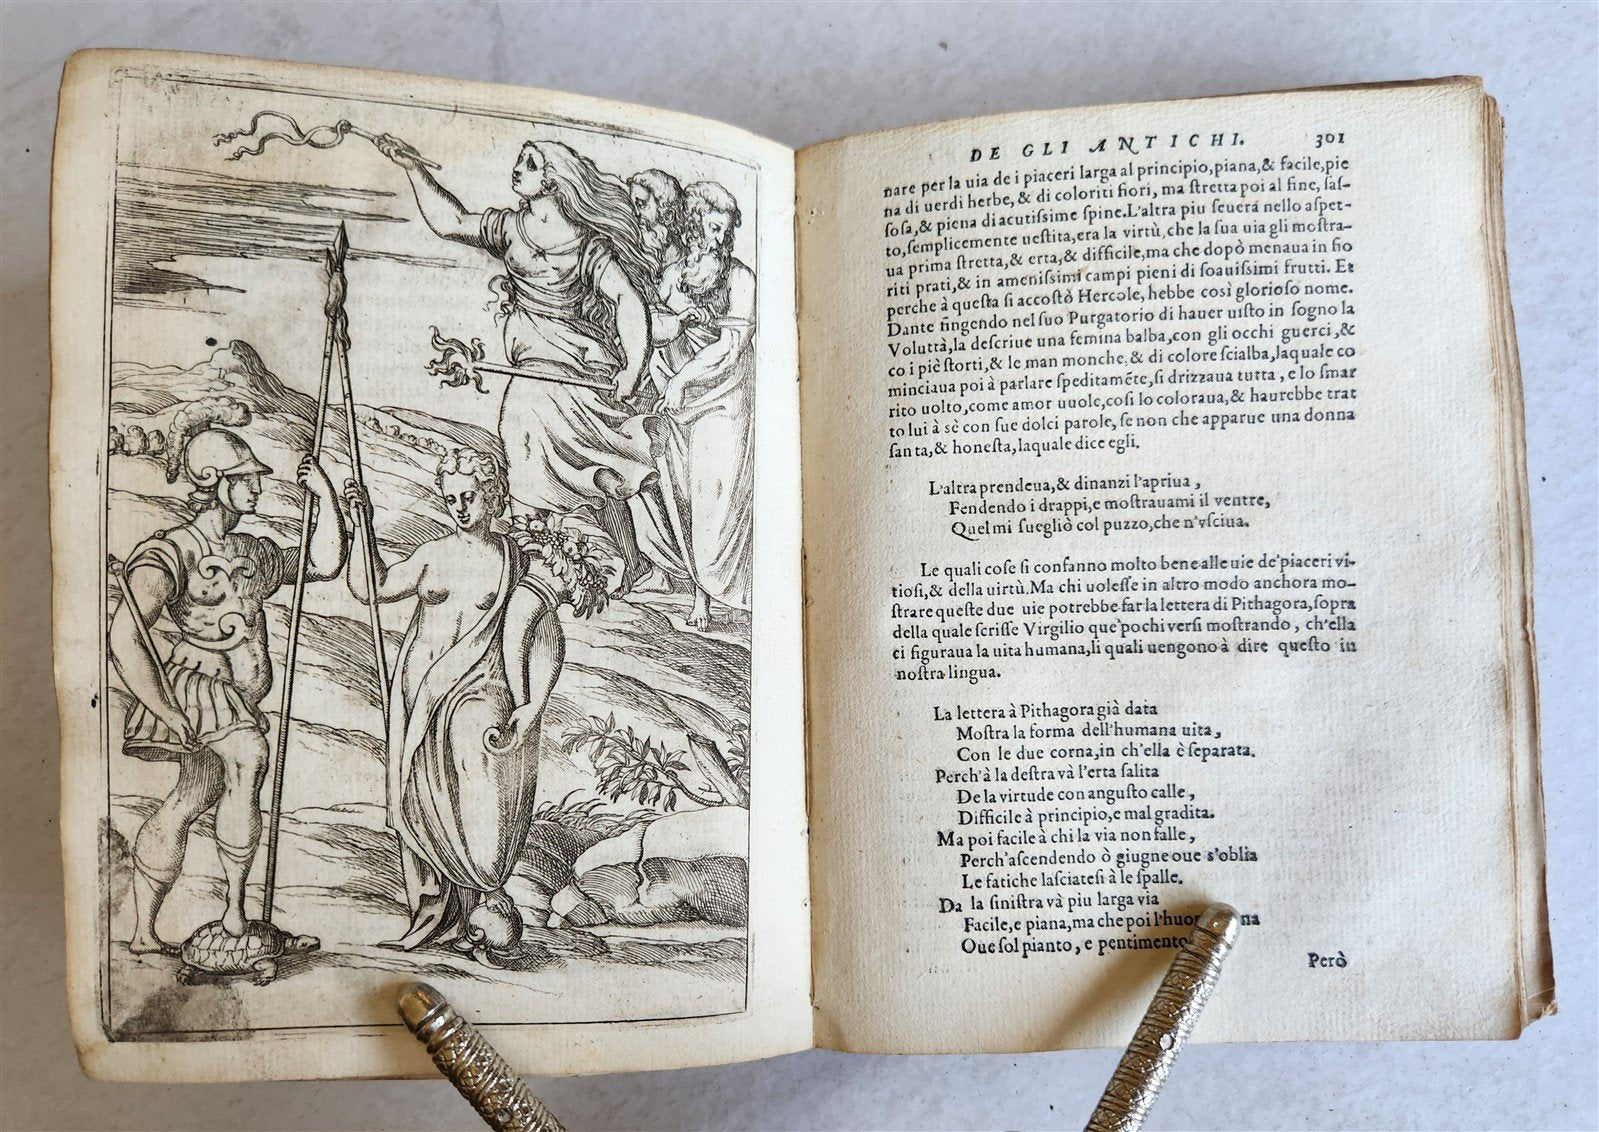 DE GLI ANTICHI. 301
nare per la uia de i piaceri larga al principio, piana, & facile, pie
na di uerdi herbe, & di coloriti fiori, ma ſtretta poi al fine, ſaſ-
ſoſa, & piena di acutiſsime ſpine. L'altra piu ſeuera nello aſpet-
to, ſemplicemente ueſtita, era la virtù, che la ſua uia gli moſtra-
ua prima ſtretta, & erta, & difficile, ma che dopò menaua in fio
riti prati, & in ameniſsimi campi pieni di ſoauiſsimi frutti. Et
perche à queſta ſi accoſtò Hercole, hebbe così glorioſo nome.
Dante fingendo nel ſuo Purgatorio di hauer uiſto in ſogno la
Voluttà, la deſcriue una femina balba, con gli occhi guerci, &
co i piè ſtorti, & le man monche, & di colore ſcialba, laquale co
minciaua poi à parlare ſpeditamēte, ſi drizzaua tutta, e lo ſmar
rito uolto, come amor uuole, coſi lo coloraua, & haurebbe trat
to lui à sè con ſue dolci parole, ſe non che apparue una donna
ſanta, & honeſta, laquale dice egli.
L'altra prendeua, & dinanzi l'apriua,
Fendendo i drappi, e moſtrauami il ventre,
Quel mi ſuegliò col puzzo, che n'vſciua.
Le quali coſe ſi confanno molto bene alle uie de' piaceri vi-
tioſi, & della uirtù. Ma chi uoleſſe in altro modo anchora mo-
ſtrare queſte due uie potrebbe far la lettera di Pithagora, ſopra
della quale ſcriſſe Virgilio que' pochi verſi moſtrando, ch'ella
ci figuraua la uita humana, li quali uengono à dire queſto in
noſtra lingua.
La lettera à Pithagora già data
Moſtra la forma dell'humana uita,
Con le due corna, in ch'ella è ſeparata.
Perch'à la deſtra và l'erta ſalita
De la virtude con anguſto calle,
Difficile à principio, e mal gradita.
Ma poi facile à chi la via non falle,
Perch'aſcendendo ò giugne oue s'oblia
Le fatiche laſciateſi à le ſpalle.
Da la ſiniſtra và piu larga via
Facile, e piana, ma che poi l'huom
Oue ſol pianto, e pentimento
Però